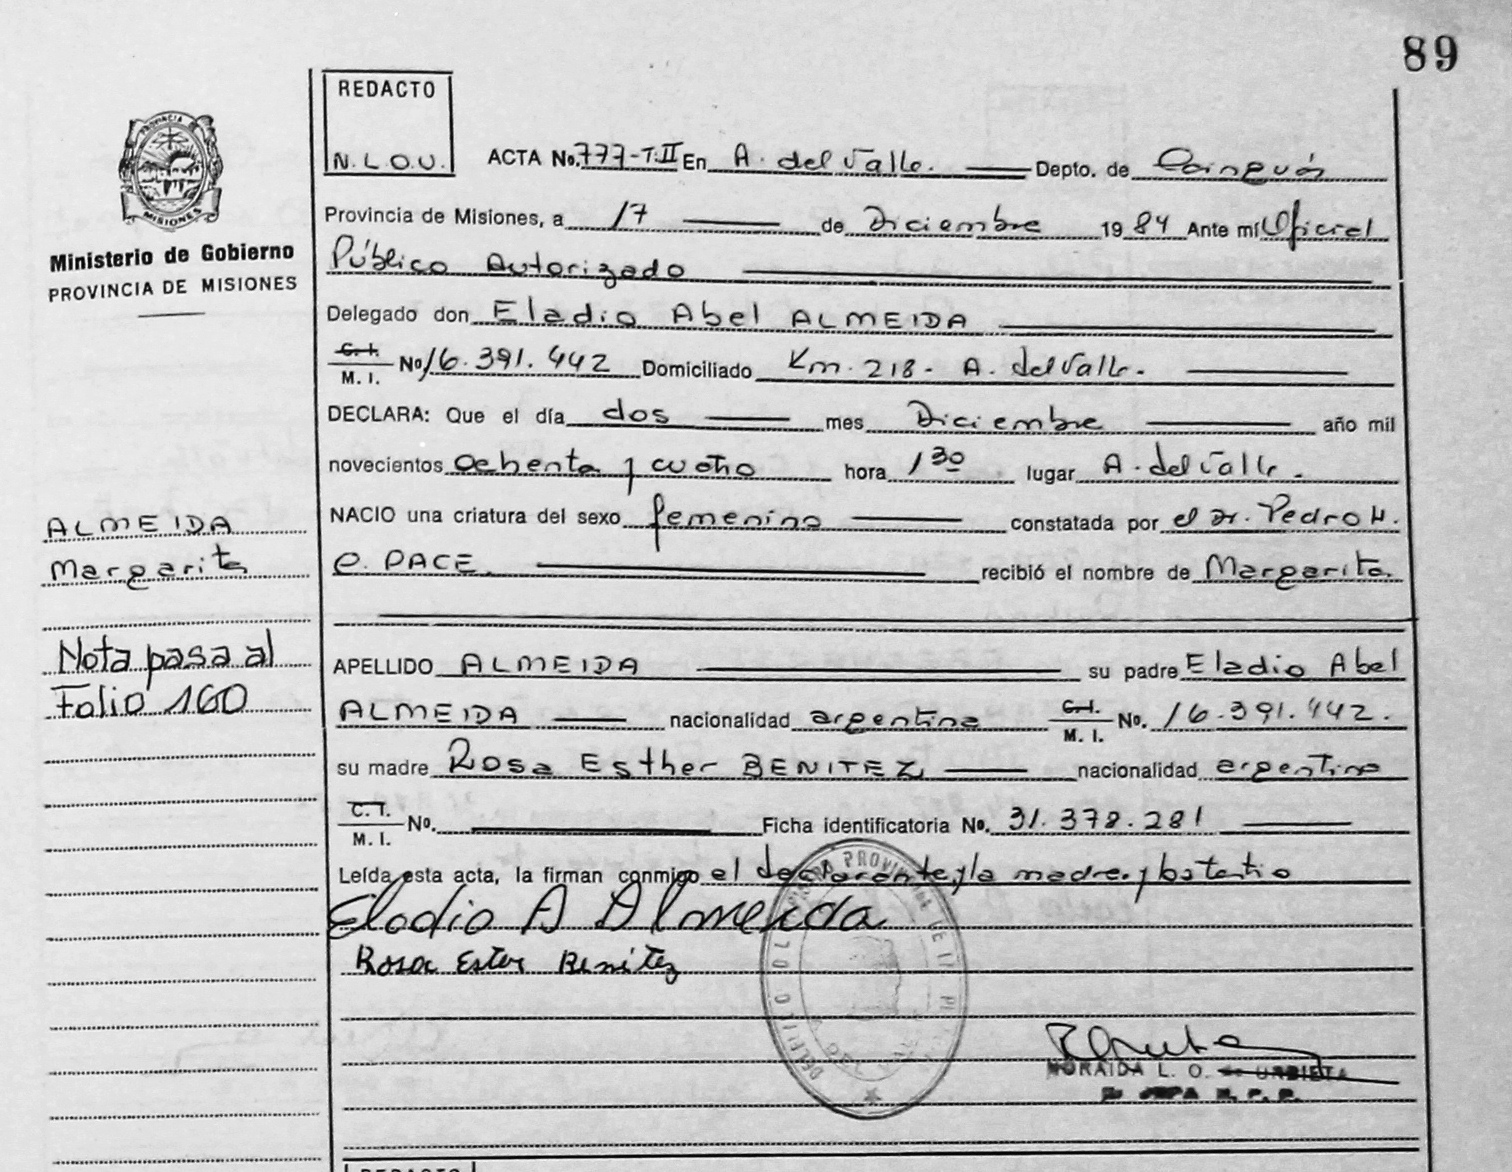 89
REDACTO
N.L.O.U.
ACTA No. 777-T.II En A. del Valle. Depto. de Cainguás
Provincia de Misiones, a 17 de Diciembre 1984 Ante mí Oficial
Público Autorizado
Delegado don Eladio Abel ALMEIDA
C.I. M. I. No 16.391.442 Domiciliado Km. 218- A. del Valle.
DECLARA: Que el día dos mes Diciembre año mil
novecientos ochenta y cuatro hora 1 30 lugar A. del Valle.
NACIO una criatura del sexo femenino constatada por el Dr. Pedro H.
C. PACE. recibió el nombre de Margarita.
APELLIDO ALMEIDA su padre Eladio Abel
ALMEIDA nacionalidad argentina C.I. M. I. No. 16.391.442.
su madre Rosa Esther BENITEZ nacionalidad argentina
C.I. M. I. No. Ficha identificatoria No. 31.378.281
Leída esta acta, la firman conmigo el declarante y la madre. y
Eladio A Almeida
Rosa Ester Benítez
MORAIDA L. O. de URBIETA
PROVINCIA
MISIONES
Ministerio de Gobierno
PROVINCIA DE MISIONES
ALMEIDA
Margarita
Nota pasa al
Folio 160
REDACTO